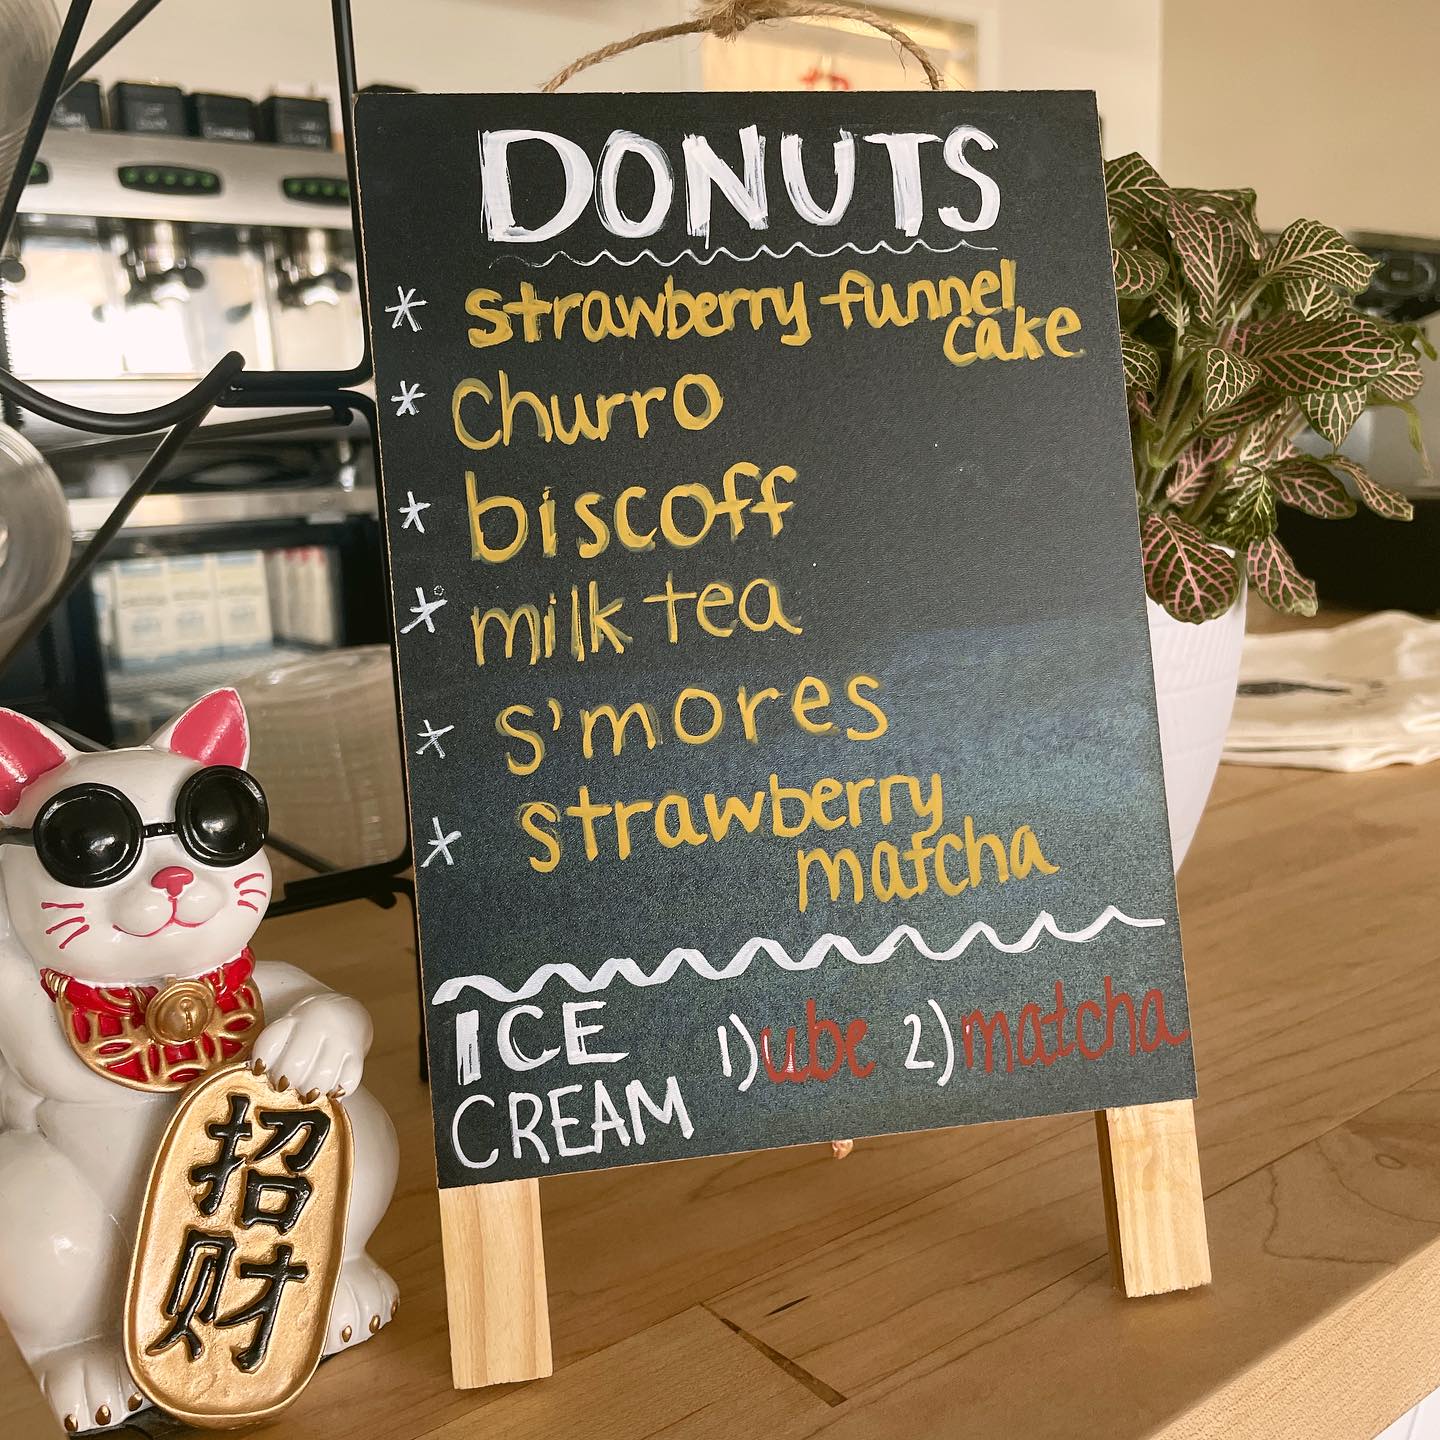 DONUTS
* strawberry funnel
cake
* churro
* biscoff
* milk tea
* s'mores
* strawberry
matcha
ICE
CREAM
1) ube 2) matcha
招
财